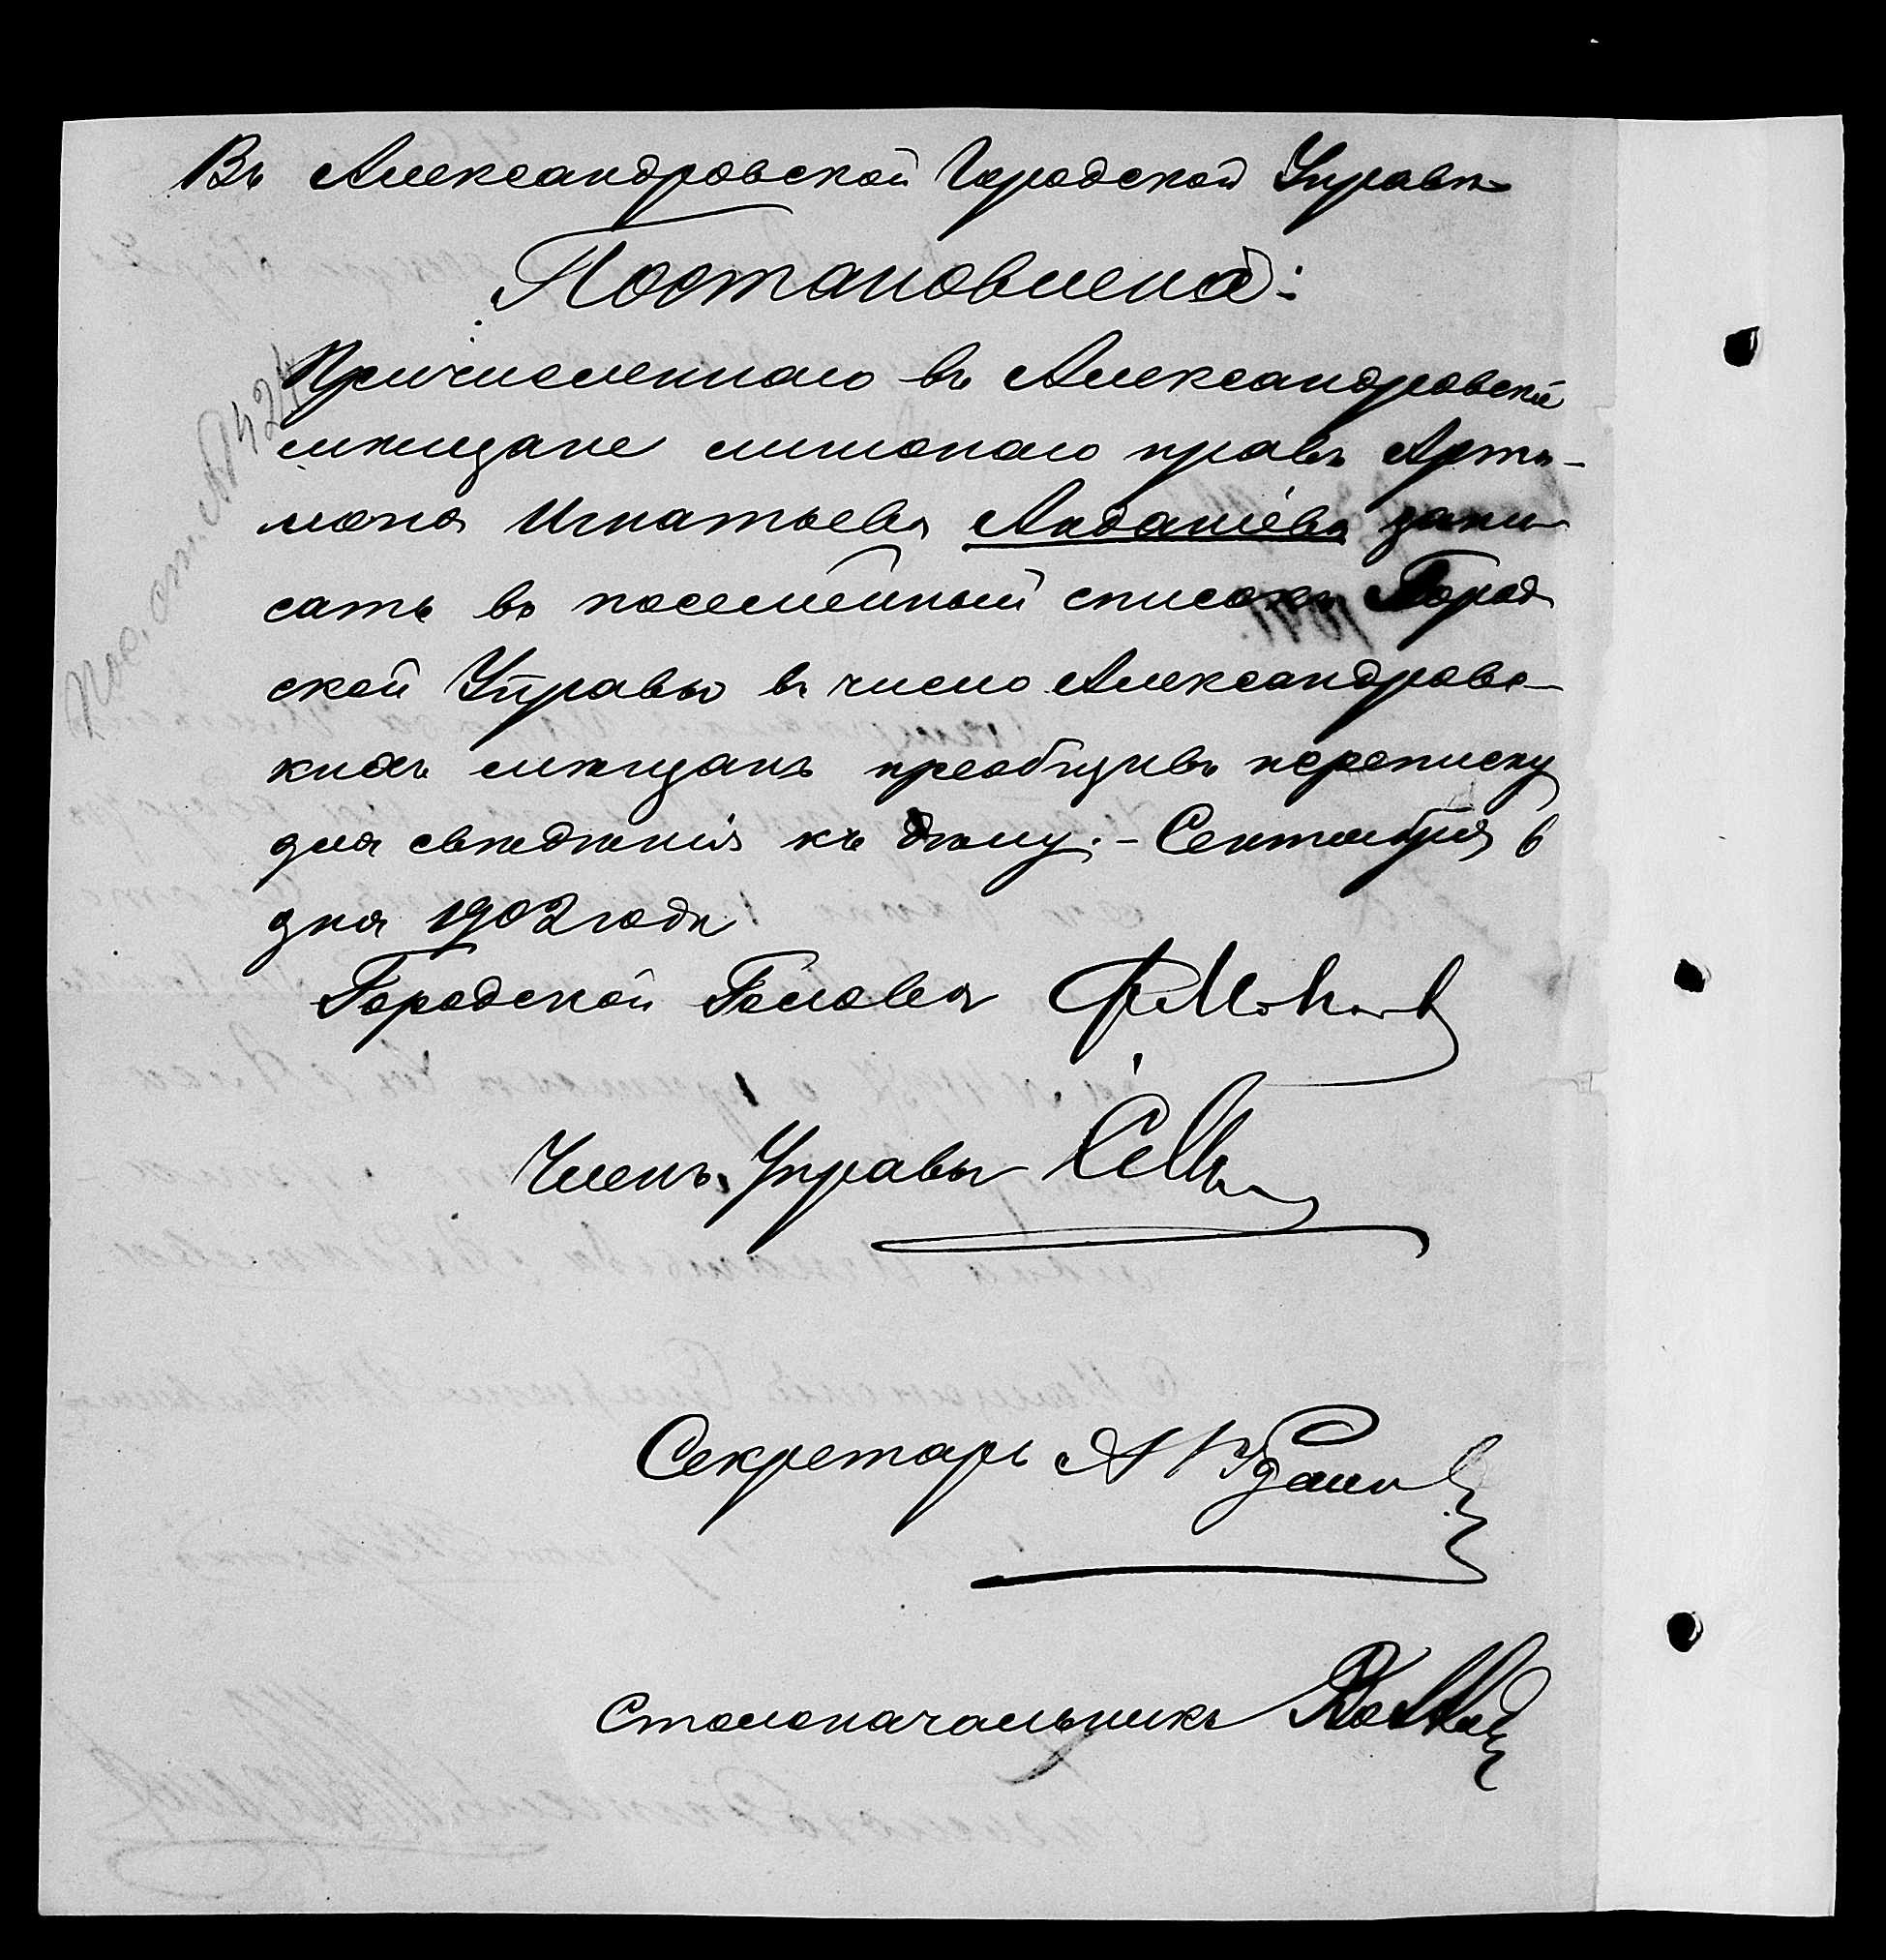 Въ Александровской Городской Управѣ
Постановлено:
Причисленнаго въ Александровскіе
мѣщане лишонаго правъ Арта-
мона Игнатьева запи
сать въ посемейный списокъ Город
ской Управы въ число Александровс-
кихъ мѣщанъ преобщивъ переписку
для свѣдѣнія къ дѣлу.- Сентября 6
дня 1902 года
Городской Голова
Членъ Управы
Секретарь
Столоначальникъ